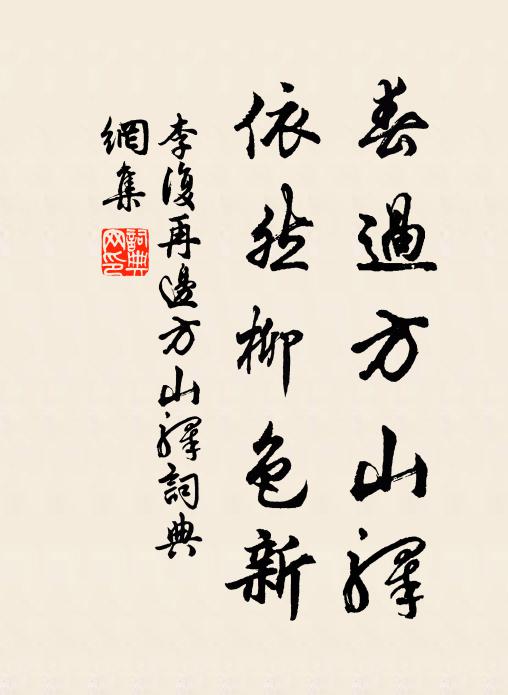 春過方山驛
依然柳色新
李復再過方山驛詞典
網集
詞典
网印